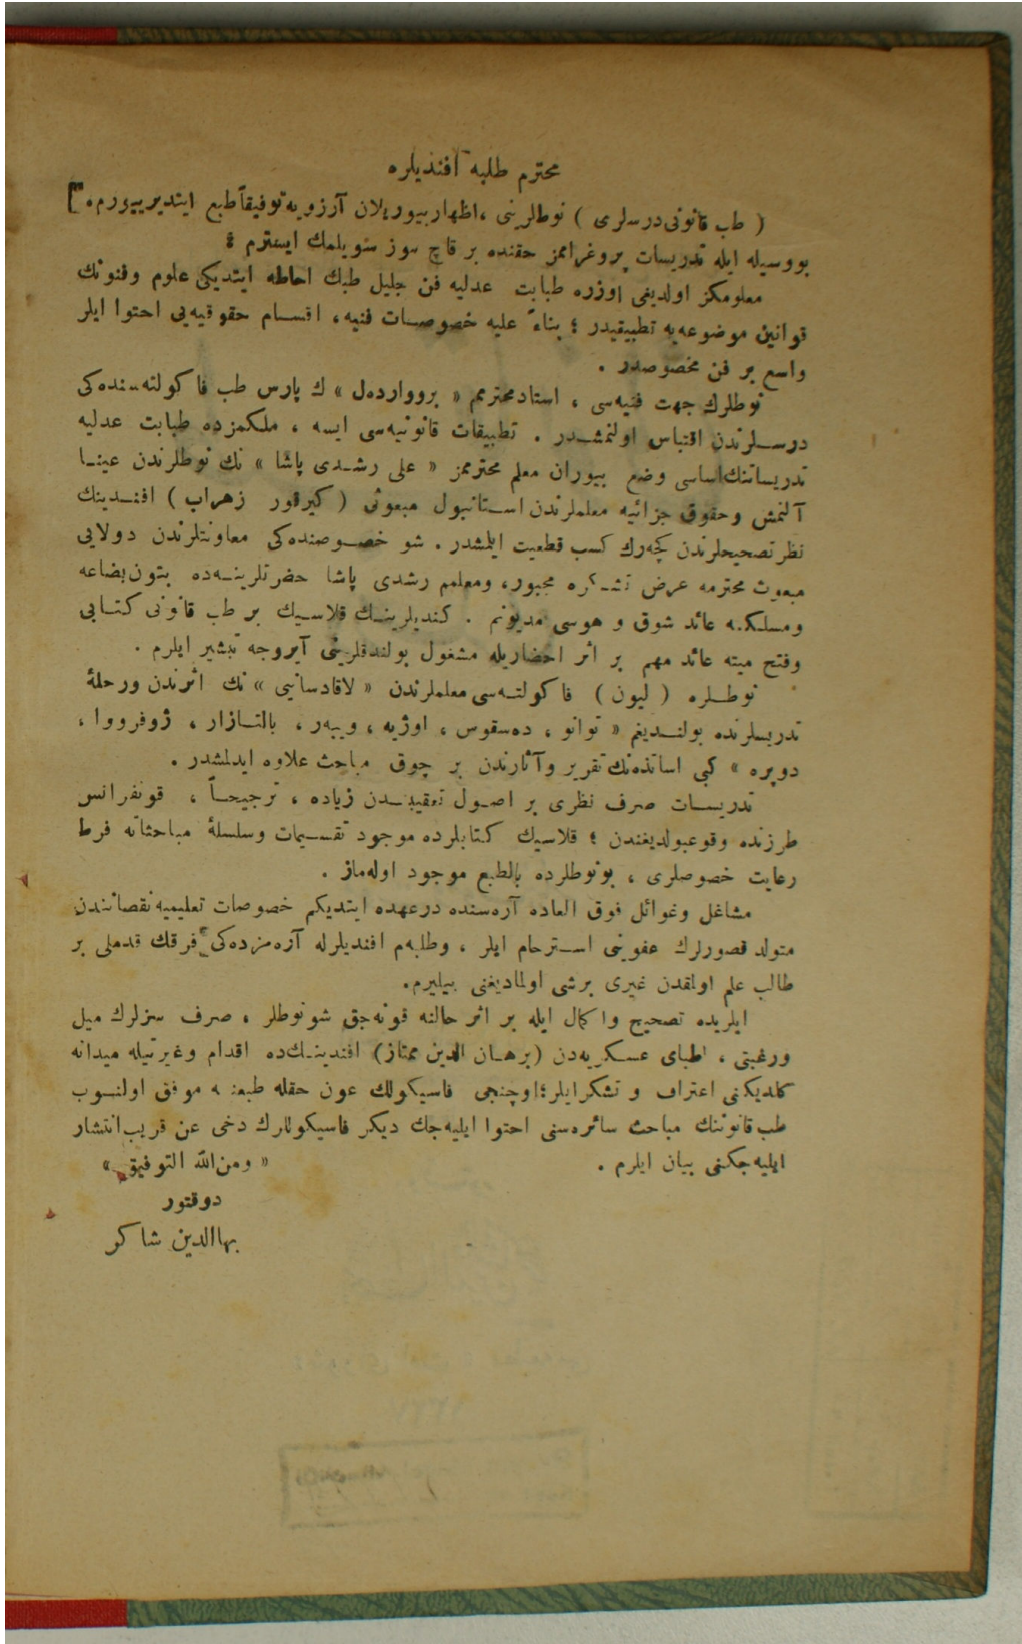 محترم طلبه افندیلره
( طب قانونی درسلری ) نوطلرینی ، اظهار بیوریلان آرزویه توفیقاً طبع ایتدیرییورم .
بووسیله ایله تدریسات پروغراممز حقنده بر قاچ سوز سویلمك ایسترم :
معلومکز اولدیغی اوزره طبابت عدلیه فن جلیل طبك احاطه ایتدیکی علوم وفنونك
قوانین موضوعه‌یه تطبیقیدر ؛ بناءً علیه خصوصات فنیه ، اقسام حقوقیه‌یی احتوا ایلر
واسع بر فن مخصوصدر .
نوطلرك جهت فنیه‌سی ، استاد محترمم « برووارده‌ل » ك پارس طب فاکولته‌سنده‌کی
درسلرندن اقتباس اولنمشدر . تطبیقات قانونیه‌سی ایسه ، ملکمزده طبابت عدلیه
تدریساتنك اساسی وضع بیوران معلم محترممز « علی رشدی پاشا » نك نوطلرندن عیناً
آلنمش وحقوق جزائیه معلملرندن استانبول مبعوثی ( کیرقور زهراب ) افندینك
نظر تصحیحلرندن کچه‌رك کسب قطعیت ایلمشدر . شو خصوصنده‌کی معاونتلرندن دولایی
مبعوث محترمه عرض تشکره مجبور ، ومعلمم رشدی پاشا حضرتلرینه‌ده بتون بضاعه
ومسلکمه عائد شوق و هوسی مدیونم . کندیلرینك قلاسیك بر طب قانونی کتابی
وفتح میته عائد مهم بر اثر احضاریله مشغول بولندقلرینی آیروجه تبشیر ایلرم .
نوطلره ( لیون ) فاکولته‌سی معلملرندن « لاقادسانیی » نك اثرندن ورحلهٔ
تدریسلرنده بولندیغم « توانو ، ده‌سقوس ، اوژیه ، ویبه‌ر ، بالتازار ، ژوفرووا ،
دوپره » کبی اساتذه‌نك تقریر وآثارندن بر چوق مباحث علاوه ایدلمشدر .
تدریسات صرف نظری بر اصول تعقیبدن زیاده ، ترجیحاً ، قونفرانس
طرزنده وقوعبولدیغندن ؛ قلاسیك کتابلرده موجود تقسیمات وسلسلهٔ مباحثاته فرط
رعایت خصوصلری ، بونوطلرده بالطبع موجود اوله‌ماز .
مشاغل وغوائل فوق العاده آره‌سنده درعهده ایتدیکم خصوصات تعلیمیه نقصانندن
متولد قصورلرك عفوینی استرحام ایلر ، وطلبه‌م افندیلرله آره‌مزده‌کی فرقك قدملی بر
طالب علم اولمقدن غیری برشی اولمادیغنی بیلیرم.
ایلریده تصحیح واکمال ایله بر اثر حالنه قونه‌جق شونوطلر ، صرف سزلرك میل
ورغبتی ، اطبای عسکریه‌دن (برهان الدین ممتاز) افندینك‌ده اقدام وغیرتیله میدانه
کلدیکنی اعتراف و تشکرایلر؛ اوچنجی فاسیکولك عون حقله طبعنه موفق اولنوب
طب قانوننك مباحث سائره‌سنی احتوا ایلیه‌جك دیکر فاسیکوللرك دخی عن قریب انتشار
ایلیه‌جکنی بیان ایلرم . « ومن الله التوفیق »
دوقتور
بهاالدین شاکر